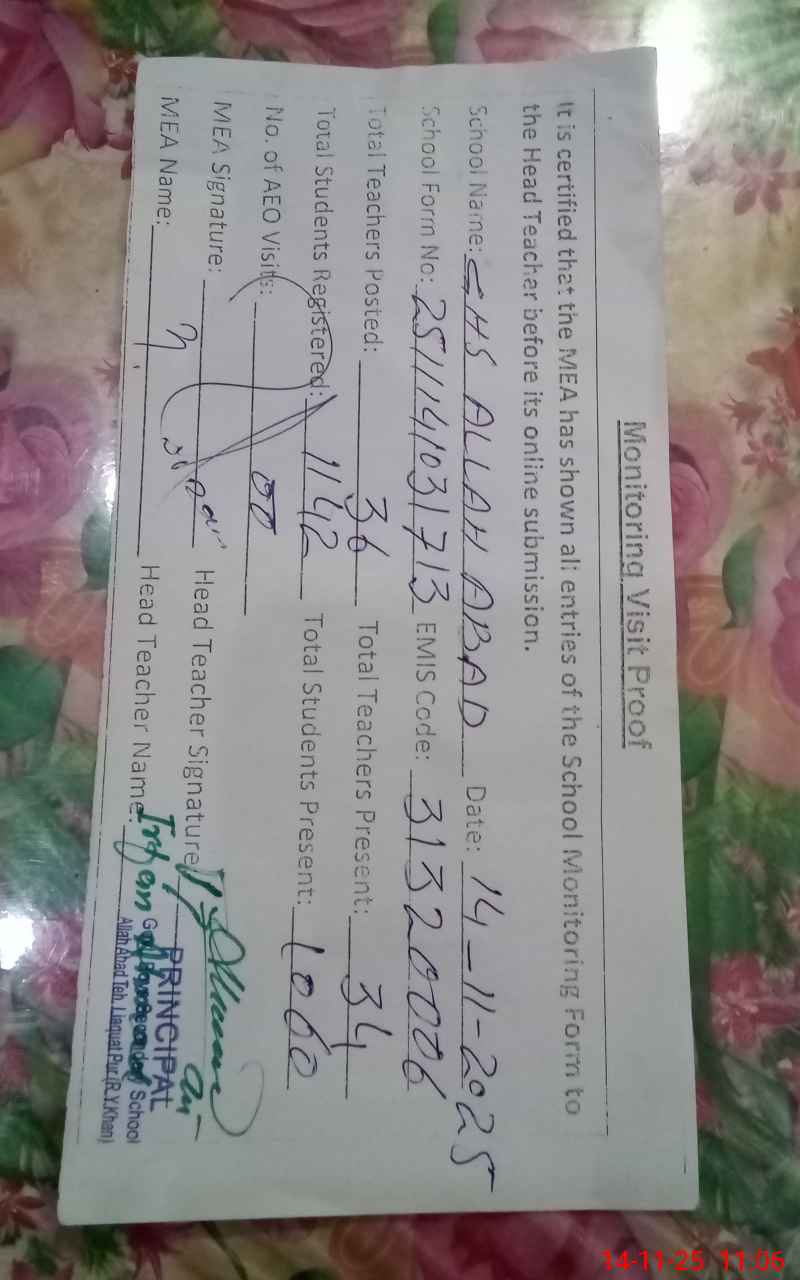 Monitoring Visit Proof
It is certified that the MEA has shown all entries of the School Monitoring Form to
the Head Teacher before its online submission.
School Name: GHS ALLAH ABAD Date: 14-11-2025
School Form No: 2511141031713 EMIS Code: 31320006
Total Teachers Posted: 36 Total Teachers Present: 34
Total Students Registered: 1142 Total Students Present: 1060
No. of AEO Visits: 00
MEA Signature: Head Teacher Signature
MEA Name: Head Teacher Name: Irfan
PRINCIPAL
School
Allah Abad Teh. Liaquat Pur (R.Y.Khan)
14-11-25 11:06